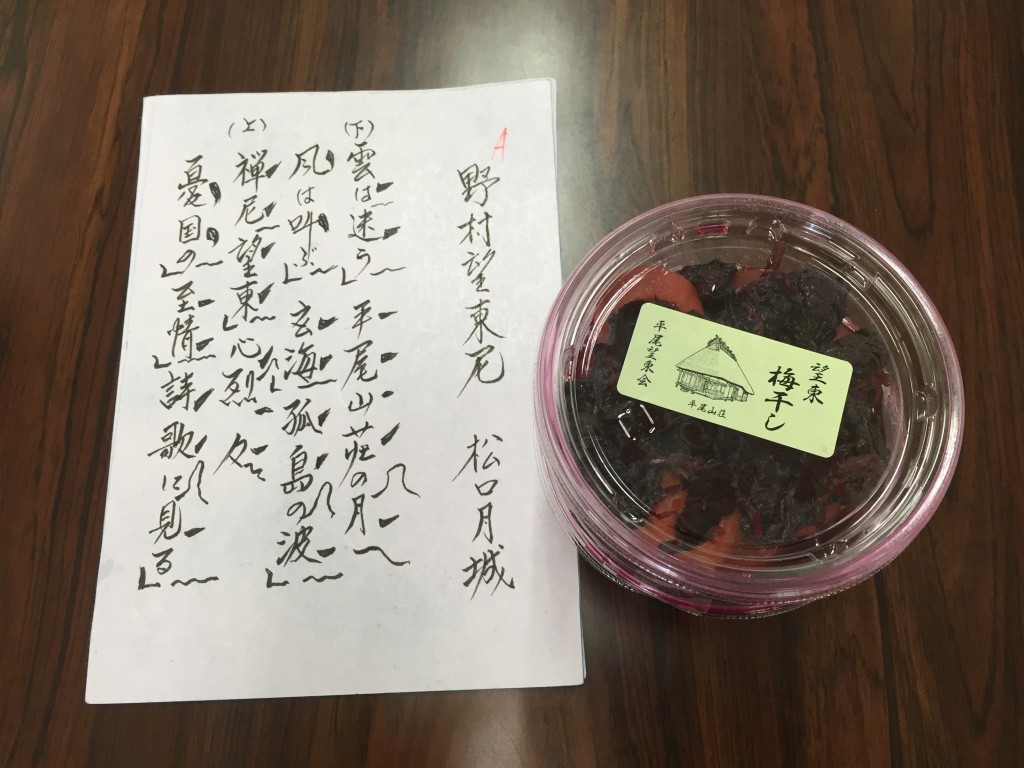 A
野村望東尼 松口月城
(下)雲は速う 平尾山荘の月
風は叫ぶ 玄海孤島の波
(上)禅尼望東心烈々
憂国の至情詩歌に見る
望東
梅干し
平尾山荘
平尾望東会